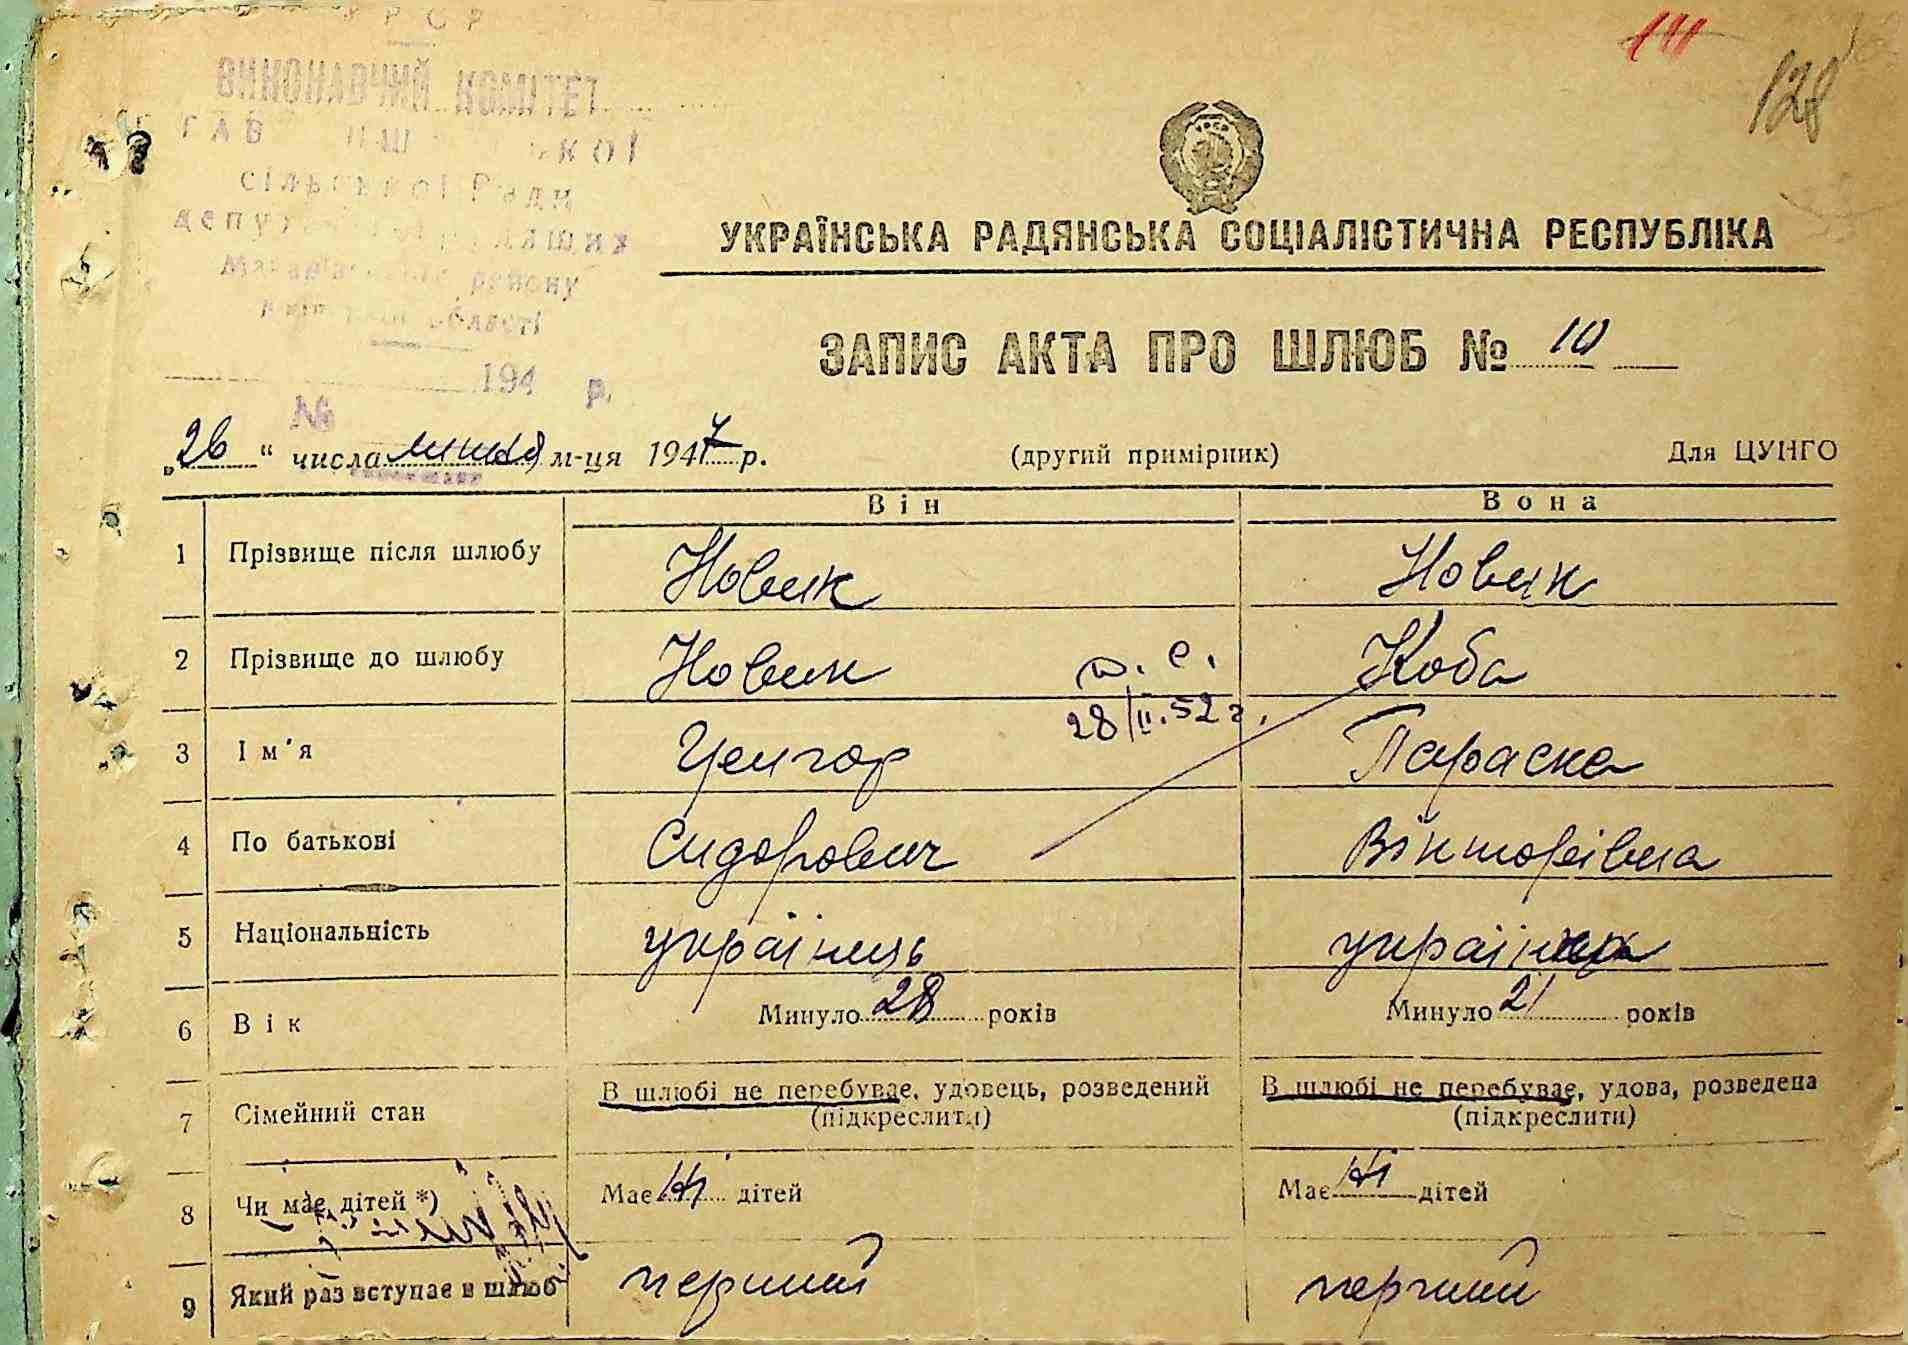 УРСР
ВИКОНАВЧИЙ КОМІТЕТ
сільської Ради
району
області
194 р.
№
111
128
УРСР
УКРАЇНСЬКА РАДЯНСЬКА СОЦІАЛІСТИЧНА РЕСПУБЛІКА
ЗАПИС АКТА ПРО ШЛЮБ № 10
„26“ числа липня м-ця 1947 р. (другий примірник) Для ЦУНГО
Він Вона
1 Прізвище після шлюбу Новик Новик
2 Прізвище до шлюбу Новик Коба
28/II.52 г.
3 Ім'я Параска
4 По батькові Сидорович Вікторівна
5 Національність українець українка
6 Вік Минуло 28 років Минуло 21 років
7 Сімейний стан В шлюбі не перебуває, удовець, розведений В шлюбі не перебуває, удова, розведена
(підкреслити) (підкреслити)
8 Чи має дітей *) Має ні дітей Має ні дітей
9 Який раз вступає в шлюб перший перший